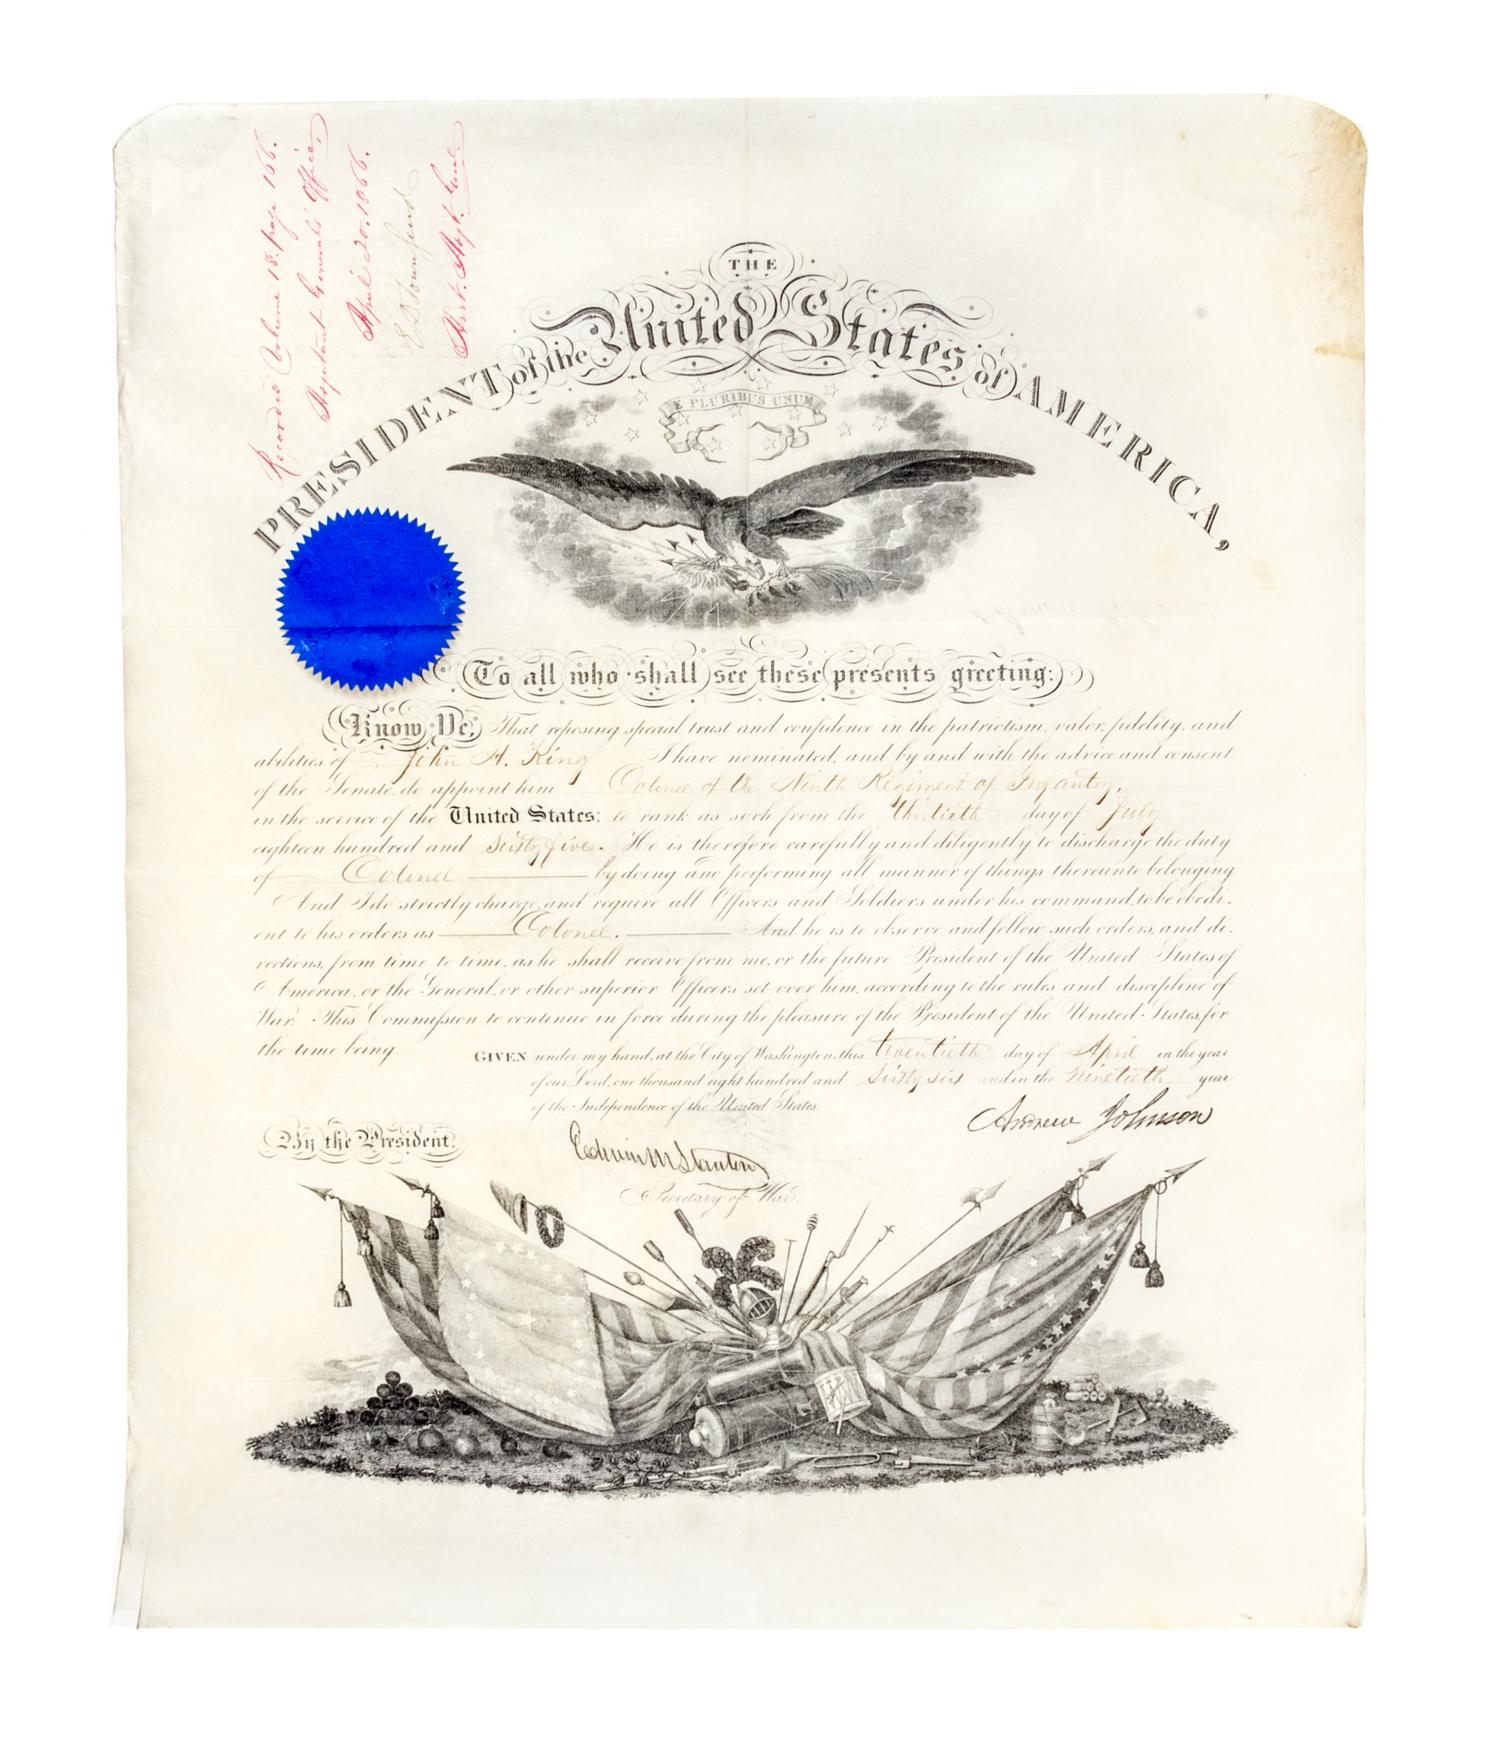 Recorded Volume 18. page 166.
Adjutant General's Office,
April 20. 1866.
E D Townsend
Asst. Adjt. Genl.
THE
PRESIDENT of the United States of AMERICA,
E PLURIBUS UNUM
To all who shall see these presents greeting:
Know Ye, That reposing special trust and confidence in the patriotism, valor, fidelity, and
abilities of John H. King I have nominated, and by and with the advice and consent
of the Senate, do appoint him Colonel of the Ninth Regiment of Infantry,
in the service of the United States: to rank as such from the thirtieth day of July
eighteen hundred and sixty five. He is therefore carefully and diligently to discharge the duty
of Colonel by doing and performing all manner of things thereunto belonging.
And I do strictly charge, and require all Officers and Soldiers under his command, to be obedi-
ent to his orders as Colonel. And he is to observe and follow such orders, and di-
rections, from time to time, as he shall receive from me, or the future President of the United States of
America, or the General, or other superior Officers set over him, according to the rules and discipline of
War. This Commission to continue in force during the pleasure of the President of the United States, for
the time being.
GIVEN under my hand, at the City of Washington, this twentieth day of April in the year
of our Lord, one thousand eight hundred and sixty six and in the ninetieth year
of the Independence of the United States.
Andrew Johnson
By the President.
Edwin M Stanton
Secretary of War.